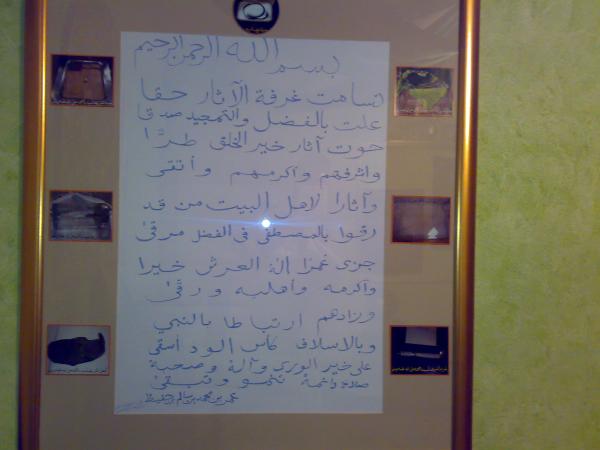 بسم الله الرحمن الرحيم
تسامت غرفة الآثار حقا
علت بالفضل والتمجيد صدقا
حوت آثار خير الخلق طرًّا
واشرفهم وأكرمهم وأتقى
وآثارا لاهل البيت من قد
رقوا بالمصطفى في الفضل مرقى
جزى إله العرش خيرا
وأكرمه وأهليه ورقى
وزادهم ارتباطا بالنبي
وبالاسلاف كأس الود أسقى
على خير الورى وآلة وصحبة
صلاة دائمة تنمو وتبقى
عمر بن محمد بن سالم بن حفيظ